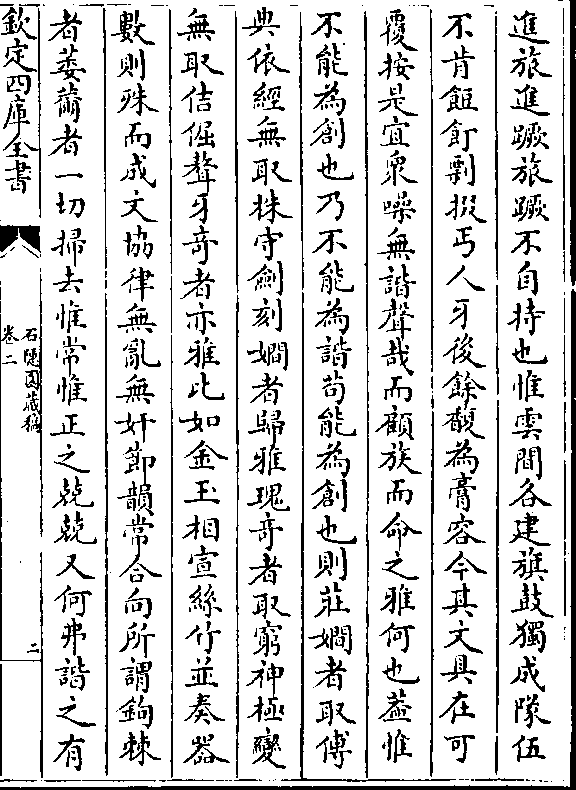 進旅進蹶旅蹶不自持也惟雲間各建旗鼓獨成隊伍
不肯飣餖剽掇丐人牙後餘馥為膏容今其文具在可
覆按是宜衆噪無諧聲哉而顧族而命之雅何也葢惟
不能為創也乃不能為諧苟能為創也則莊嫺者取傅
典依經無取株守劍刻嫺者歸雅瑰竒者取窮神極變
無取佶倔聱牙竒者亦雅比如金玉相宣絲竹並奏器
數則殊而成文協律無亂無奸節韻常合向所謂鉤棘
者萎薾者一切掃去惟常惟正之兢兢又何弗諧之有
欽定四庫全書
石隱園藏稿
卷二
二